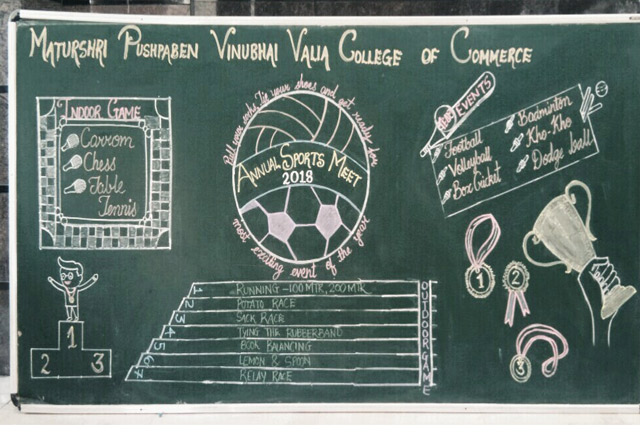 MATURSHRI PUSHPABEN VINUBHAI VALIA COLLEGE OF COMMERCE
INDOOR GAME
Carrom
Chess
Table
Tennis
Pull your socks, Tie your shoes and get ready for
ANNUAL SPORTS MEET
2018
most exciting event of the year
EVENTS
Football
Volleyball
Box Cricket
Badminton
Kho-Kho
Dodge ball
1
2
3
1
2
3
1 RUNNING - 100 MTR, 200 MTR
2 POTATO RACE
3 SACK RACE
4 TYING THR RUBBERBAND
5 BOOK BALANCING
6 LEMON & SPOON
7 RELAY RACE
OUTDOOR GAME